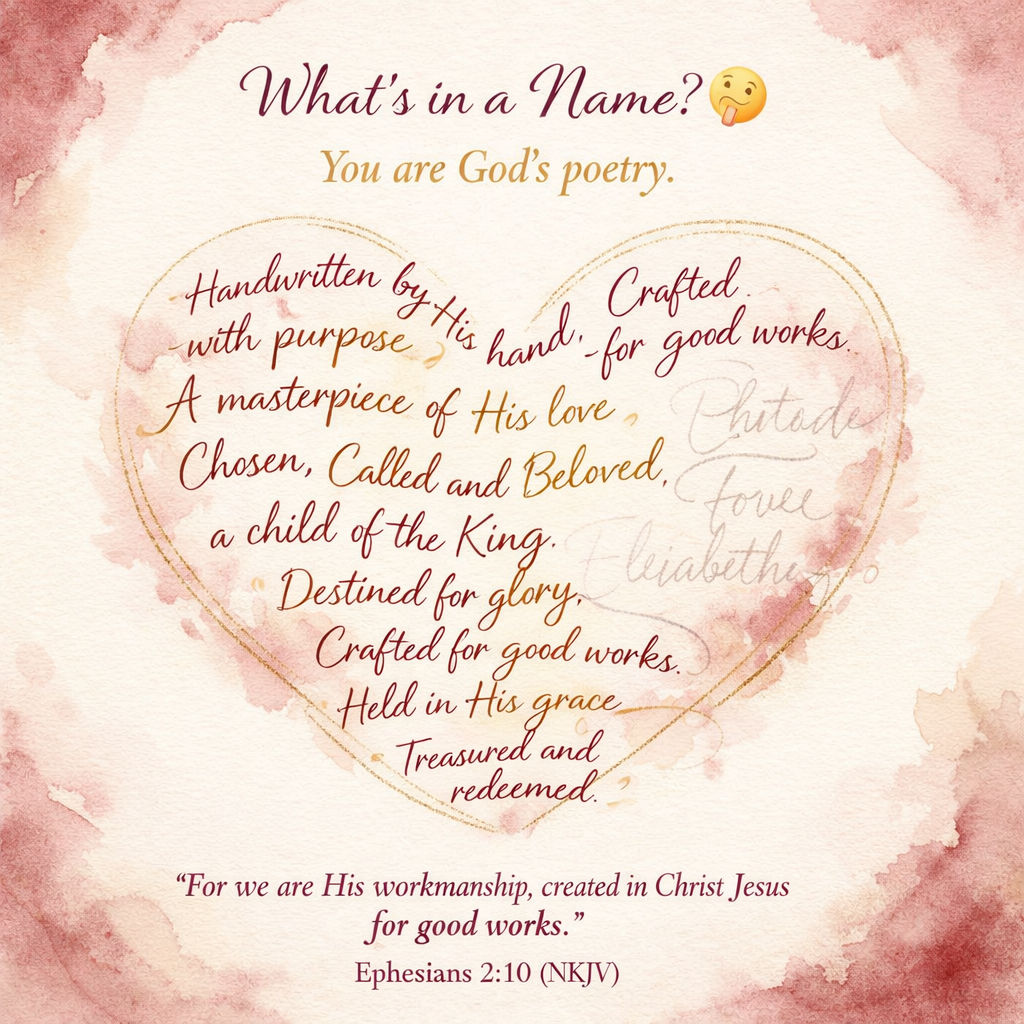 What's in a Name?
You are God's poetry.
Handwritten by His hand,
Crafted
-with purpose
-for good works.
A masterpiece of His love
Chosen, Called and Beloved,
a child of the King.
Destined for glory,
Crafted for good works.
Held in His grace
Treasured and
redeemed.
"For we are His workmanship, created in Christ Jesus
for good works."
Ephesians 2:10 (NKJV)